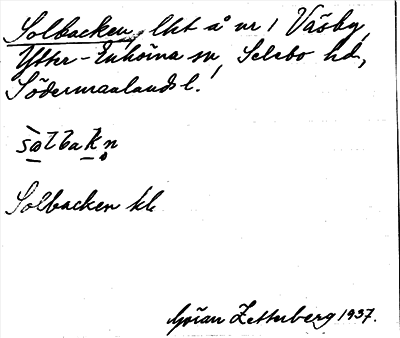 Solbacken, lht å nr 1 Väsby,
Ytter-Enhörna sn, Selebo hd,
Södermanlands l.
Solbacken kb
Göran Zetterberg 1937.